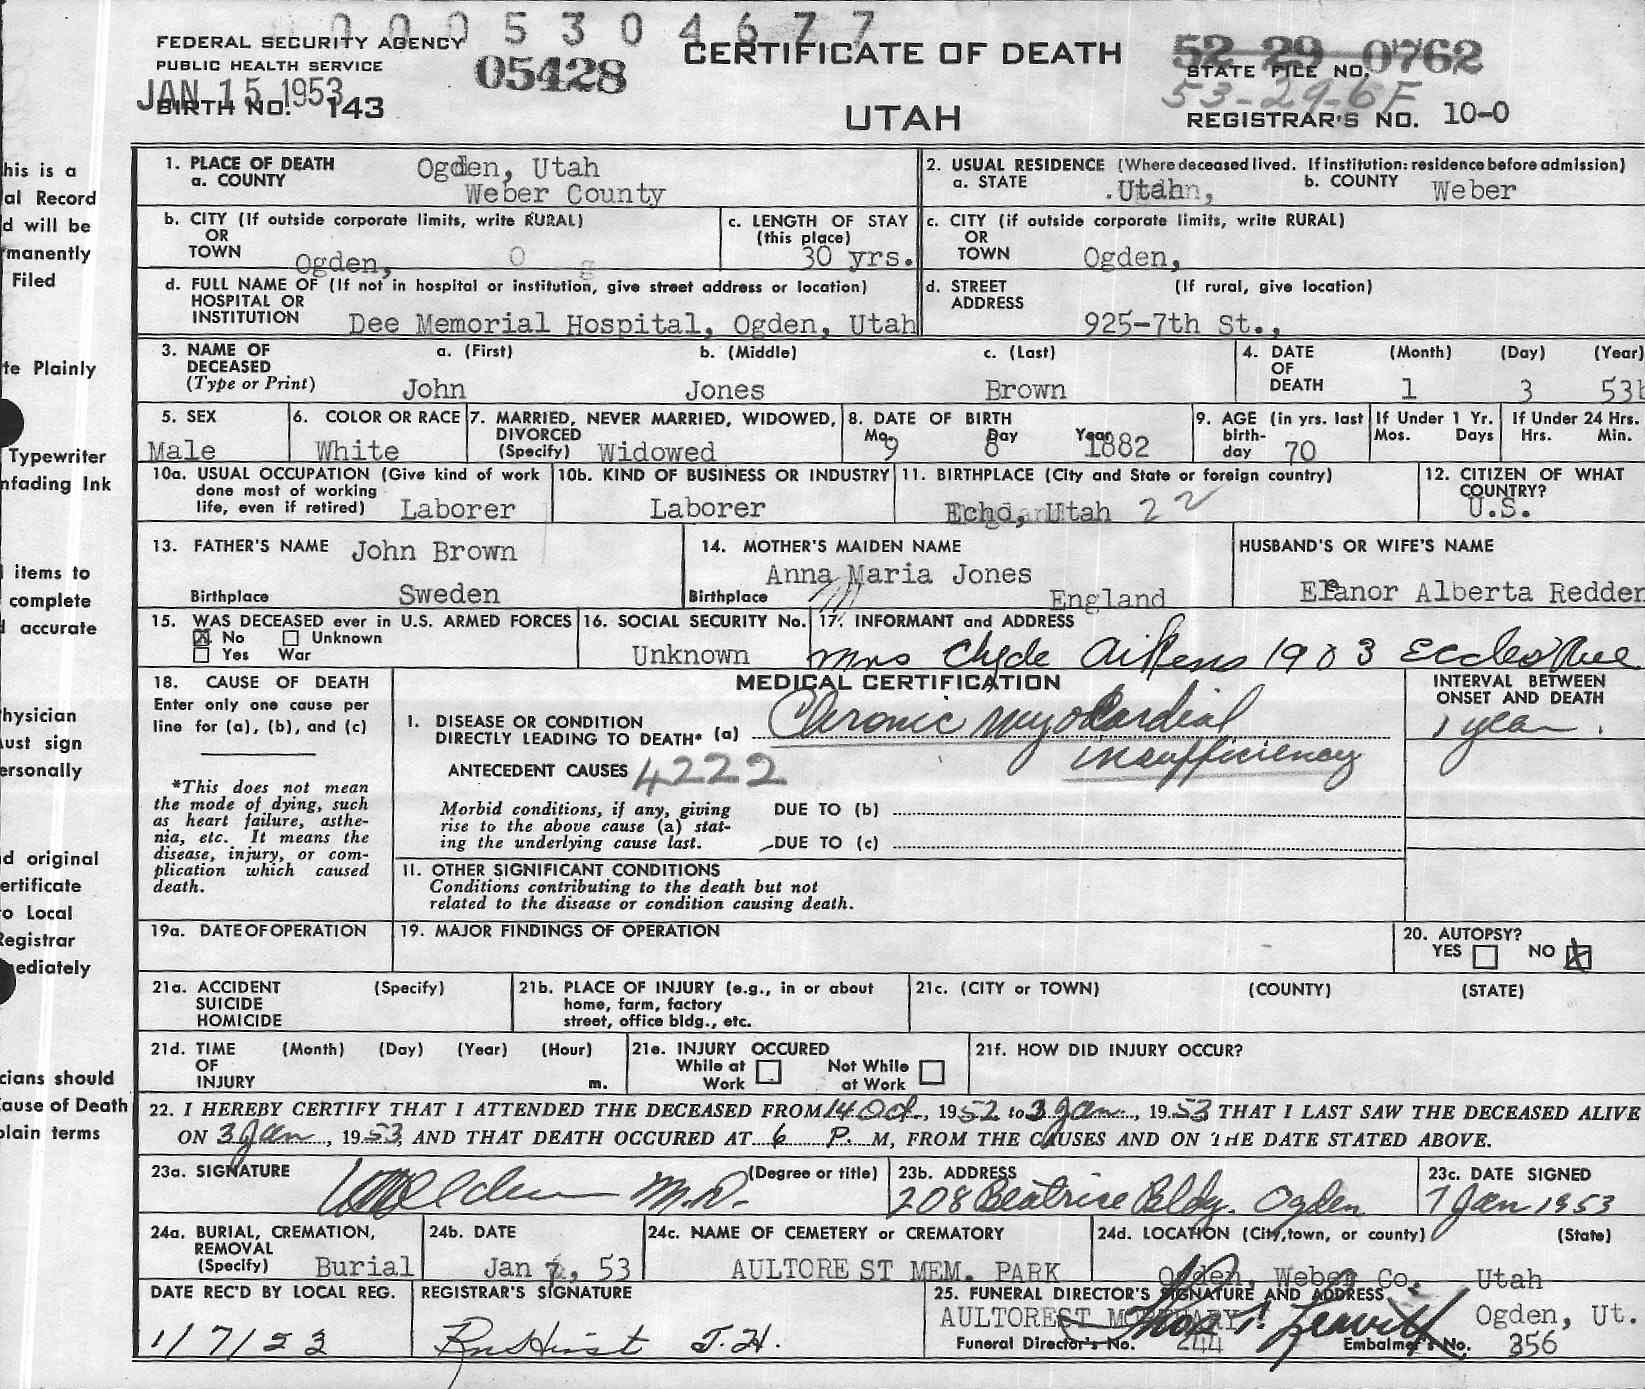 0 0 0 5 3 0 4 6 7 7
FEDERAL SECURITY AGENCY
PUBLIC HEALTH SERVICE
JAN 15 1953
BIRTH NO. 143
05428
CERTIFICATE OF DEATH
UTAH
52 29 0762
STATE FILE NO.
53-29-6F
REGISTRAR'S NO. 10-0
his is a
al Record
d will be
manently
Filed
te Plainly
Typewriter
nfading Ink
items to
complete
accurate
hysician
ust sign
ersonally
d original
ertificate
o Local
Registrar
mediately
cians should
ause of Death
plain terms
1. PLACE OF DEATH
a. COUNTY
Ogden, Utah
Weber County
2. USUAL RESIDENCE (Where deceased lived. If institution: residence before admission)
a. STATE Utah, b. COUNTY Weber
b. CITY (If outside corporate limits, write RURAL)
OR
TOWN Ogden,
c. LENGTH OF STAY
(this place)
30 yrs.
c. CITY (if outside corporate limits, write RURAL)
OR
TOWN Ogden,
d. FULL NAME OF (If not in hospital or institution, give street address or location)
HOSPITAL OR
INSTITUTION Dee Memorial Hospital, Ogden, Utah
d. STREET (If rural, give location)
ADDRESS
925-7th St.,
3. NAME OF DECEASED
(Type or Print)
a. (First) b. (Middle) c. (Last)
John Jones Brown
4. DATE OF DEATH (Month) (Day) (Year)
1 3 53
5. SEX
Male
6. COLOR OR RACE
White
7. MARRIED, NEVER MARRIED, WIDOWED,
DIVORCED
(Specify) Widowed
8. DATE OF BIRTH
Mo. Day Year
9 8 1882
9. AGE (in yrs. last
birth-
day 70
If Under 1 Yr.
Mos. Days
If Under 24 Hrs.
Hrs. Min.
10a. USUAL OCCUPATION (Give kind of work
done most of working
life, even if retired) Laborer
10b. KIND OF BUSINESS OR INDUSTRY
Laborer
11. BIRTHPLACE (City and State or foreign country)
Echo, Utah 22
12. CITIZEN OF WHAT
COUNTRY?
U.S.
13. FATHER'S NAME John Brown
Birthplace Sweden
14. MOTHER'S MAIDEN NAME
Anna Maria Jones
Birthplace England
HUSBAND'S OR WIFE'S NAME
Elanor Alberta Redden
15. WAS DECEASED ever in U.S. ARMED FORCES
No Unknown
Yes War
16. SOCIAL SECURITY No.
Unknown
17. INFORMANT and ADDRESS
Mrs Clyde Aikens 1903 Eccles Ave
18. CAUSE OF DEATH
Enter only one cause per
line for (a), (b), and (c)
*This does not mean
the mode of dying, such
as heart failure, asthe-
nia, etc. It means the
disease, injury, or com-
plication which caused
death.
MEDICAL CERTIFICATION
I. DISEASE OR CONDITION
DIRECTLY LEADING TO DEATH* (a) Chronic myocardial
insufficiency
ANTECEDENT CAUSES 4222
Morbid conditions, if any, giving
rise to the above cause (a) stat-
ing the underlying cause last.
DUE TO (b)
DUE TO (c)
INTERVAL BETWEEN
ONSET AND DEATH
1 year
II. OTHER SIGNIFICANT CONDITIONS
Conditions contributing to the death but not
related to the disease or condition causing death.
19a. DATE OF OPERATION
19. MAJOR FINDINGS OF OPERATION
20. AUTOPSY?
YES NO
21a. ACCIDENT (Specify)
SUICIDE
HOMICIDE
21b. PLACE OF INJURY (e.g., in or about
home, farm, factory
street, office bldg., etc.
21c. (CITY or TOWN) (COUNTY) (STATE)
21d. TIME (Month) (Day) (Year) (Hour)
OF
INJURY m.
21e. INJURY OCCURED
While at Work
Not While at Work
21f. HOW DID INJURY OCCUR?
22. I HEREBY CERTIFY THAT I ATTENDED THE DECEASED FROM 14 Oct, 1952 to 3 Jan, 1953 THAT I LAST SAW THE DECEASED ALIVE
ON 3 Jan, 1953 AND THAT DEATH OCCURED AT 6 P. M, FROM THE CAUSES AND ON THE DATE STATED ABOVE.
23a. SIGNATURE M.D. (Degree or title)
23b. ADDRESS
208 Beatrice Bldg. Ogden
23c. DATE SIGNED
7 Jan 1953
24a. BURIAL, CREMATION,
REMOVAL
(Specify) Burial
24b. DATE
Jan 7, 53
24c. NAME OF CEMETERY or CREMATORY
AULTOREST MEM. PARK
24d. LOCATION (City, town, or county) (State)
Ogden, Weber Co. Utah
DATE REC'D BY LOCAL REG.
1/7/53
REGISTRAR'S SIGNATURE
J.H.
25. FUNERAL DIRECTOR'S SIGNATURE AND ADDRESS
AULTOREST MORTUARY Ogden, Ut.
Funeral Director's No. 244 Embalmer's No. 356